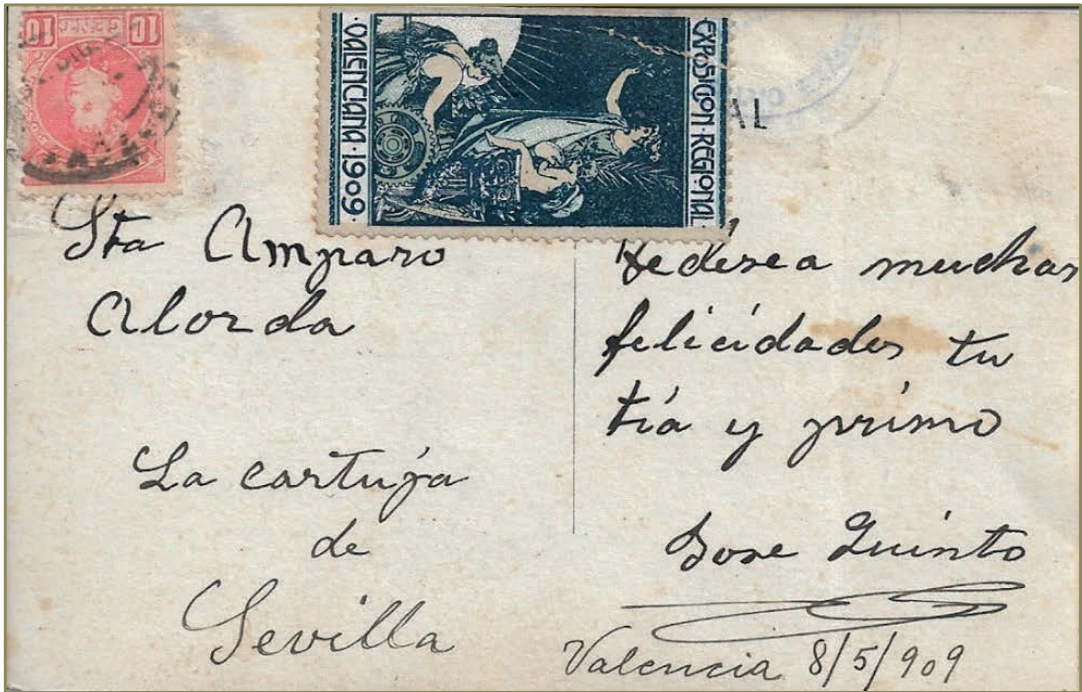 10 10
EXPOSICION·REGIONAL·
VALENCIANA·1909·
AL
Sta Amparo
Alorda
La cartuja
de
Sevilla
te desea muchas
felicidades tu
tía y primo
Jose Quinto
Valencia 8/5/909